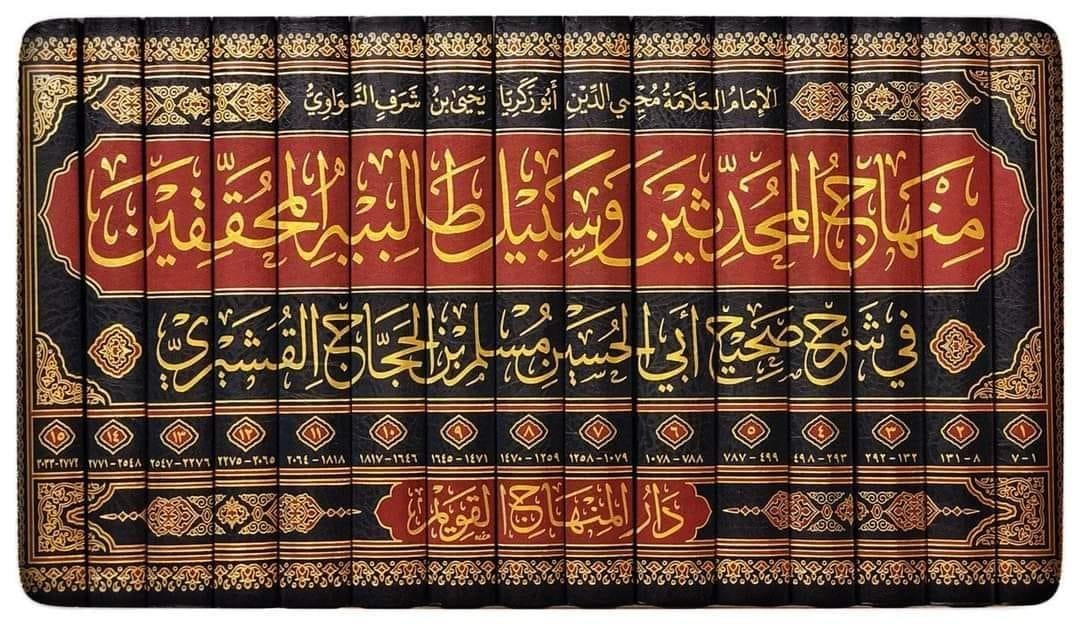 الإِمَامُ العَلَّامَةُ مُحْيِي الدِّينِ أَبُو زَكَرِيَّا يَحْيَى بْنُ شَرَفٍ النَّوَاوِيُّ
مِنْهَاجُ المُحَدِّثِينَ وَسَبِيلُ طَالِبِيهِ المُحَقِّقِينَ
فِي شَرْحِ صَحِيحِ أَبِي الحُسَيْنِ مُسْلِمِ بْنِ الحَجَّاجِ القُشَيْرِيِّ
١ ٢ ٣ ٤ ٥ ٦ ٧ ٨ ٩ ١٠ ١١ ١٢ ١٣ ١٤ ١٥
١-٧ ٨-١٣١ ١٣٢-٢٩٢ ٢٩٣-٤٩٨ ٤٩٩-٧٨٧ ٧٨٨-١٠٧٨ ١٠٧٩-١٢٥٨ ١٢٥٩-١٤٧٠ ١٤٧١-١٦٤٥ ١٦٤٦-١٨١٧ ١٨١٨-٢٠٦٤ ٢٠٦٥-٢٢٧٥ ٢٢٧٦-٢٥٤٧ ٢٥٤٨-٢٧٧١ ٢٧٧٢-٣٠٣٣
دَارُ المِنْهَاجِ القَوِيمِ